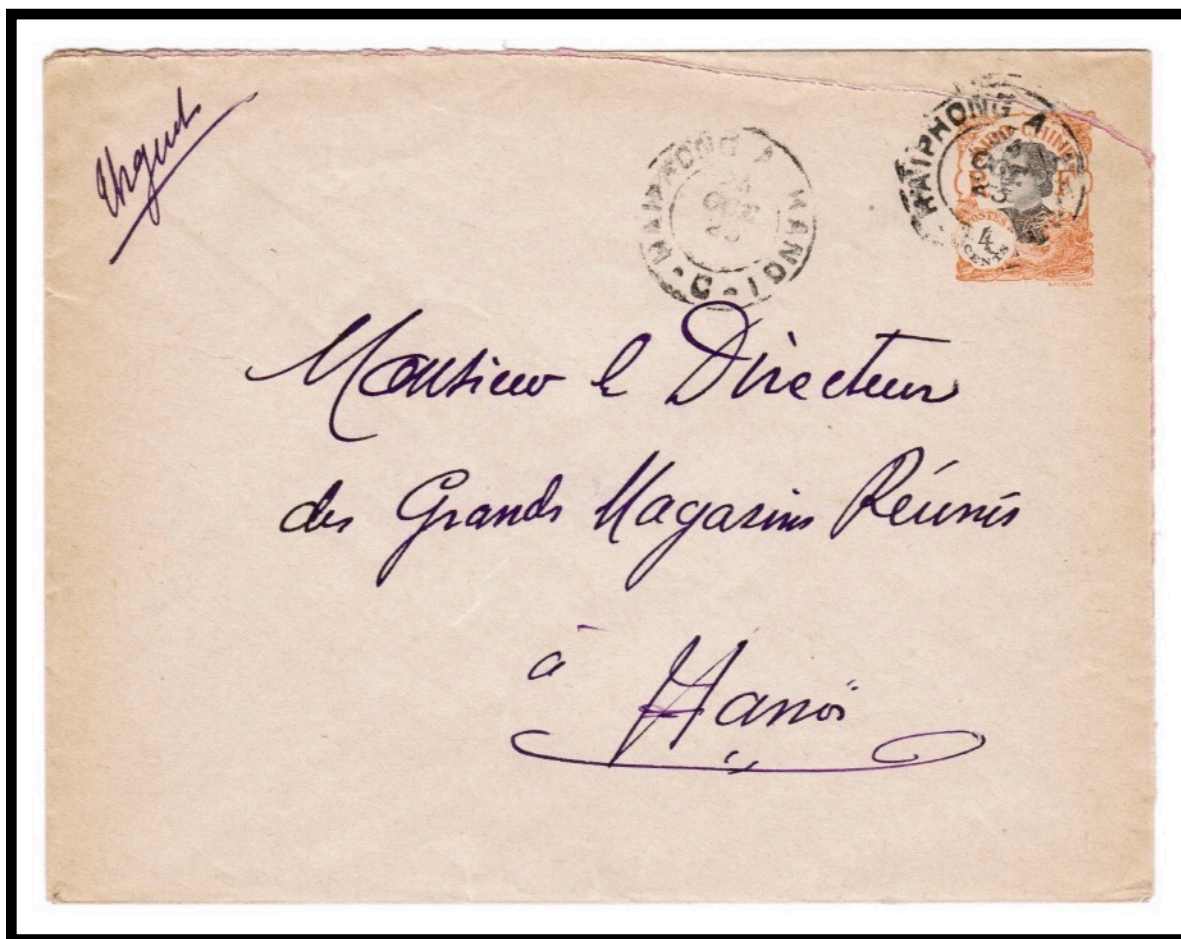 Urgent
HAIPHONG A HANOI · C ·
OCT
HAIPHONG A
INDO-CHINE
POSTES
4
CENTS
Monsieur le Directeur
des Grands Magasins Réunis
à Hanoï